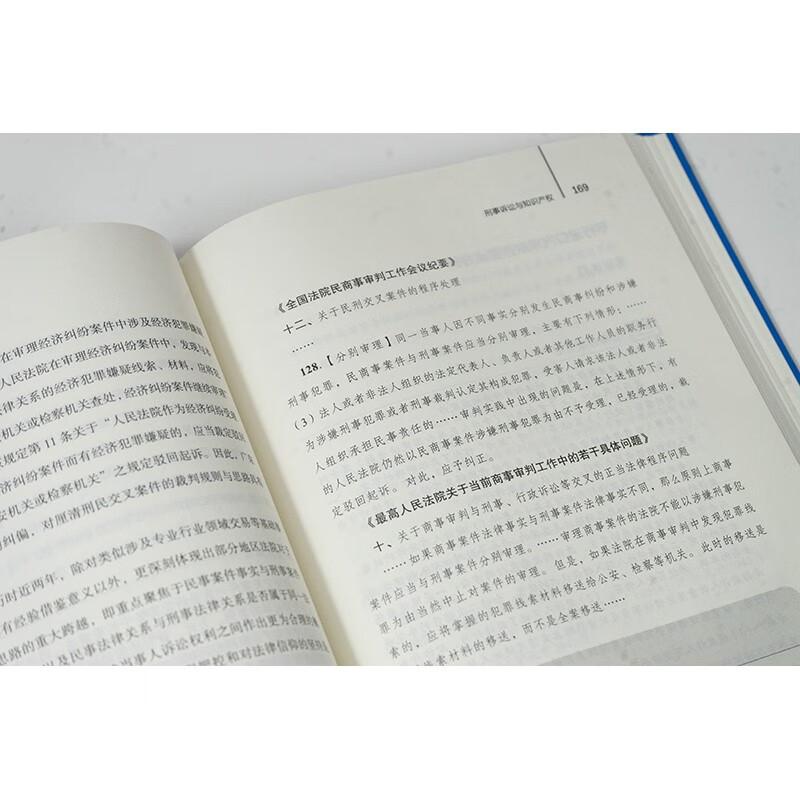 在审理经济纠纷案件中涉及经济犯罪嫌
人民法院在审理经济纠纷案件中，发现与本
律关系的经济犯罪嫌疑线索、材料，应将犯
机关或检察机关查处，经济纠纷案件继续审理
规定第11条关于“人民法院作为经济纠纷受理
济纠纷案件而有经济犯罪嫌疑的，应当裁定驳回
安机关或检察机关”之规定驳回起诉。因此，广
纠偏，对厘清刑民交叉案件的裁判规则与思路具
历时近两年，除对类似涉及专业行业领域交易等基础
有经验借鉴意义以外，更深刻体现出部分地区法院对于
思路的重大跨越，即重点聚焦于民事案件事实与刑事案件
以及民事法律关系与刑事法律关系是否属于同一
当事人诉讼权利之间作出更为合理的
和对法律信仰的坚持
刑事诉讼与知识产权 169
《全国法院民商事审判工作会议纪要》
十二、关于民刑交叉案件的程序处理
……
128.【分别审理】同一当事人因不同事实分别发生民商事纠纷和涉嫌
刑事犯罪，民商事案件与刑事案件应当分别审理，主要有下列情形：……
（3）法人或者非法人组织的法定代表人、负责人或者其他工作人员的职务行
为涉嫌刑事犯罪或者刑事裁判认定其构成犯罪，受害人请求该法人或者非法
人组织承担民事责任的……审判实践中出现的问题是，在上述情形下，有
的人民法院仍然以民商事案件涉嫌刑事犯罪为由不予受理，已经受理的，裁
定驳回起诉。对此，应予纠正。
《最高人民法院关于当前商事审判工作中的若干具体问题》
十、关于商事审判与刑事、行政诉讼等交叉的正当法律程序问题
……如果商事案件法律事实与刑事案件法律事实不同，那么原则上商事
案件应当与刑事案件分别审理。……审理商事案件的法院不能以涉嫌刑事犯
罪为由当然中止对案件的审理。但是，如果法院在商事审判中发现犯罪线
索的，应将掌握的犯罪线索材料移送给公安、检察等机关。此时的移送是
索材料的移送，而不是全案移送……